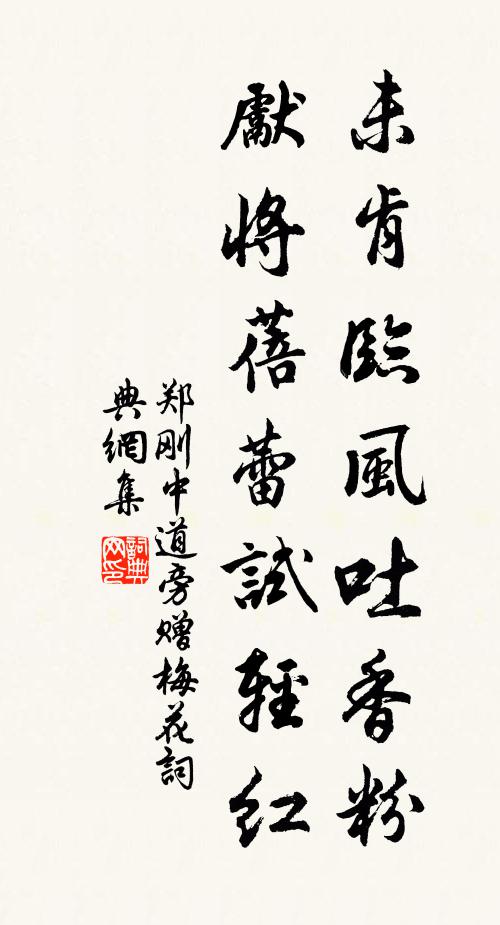 未肯臨風吐香粉
獻將蓓蕾試輕红
郑刚中道旁赠梅花詞
典網集
詞典
网印